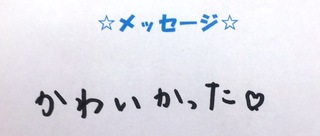 ☆メッセージ☆
かわいかった♡